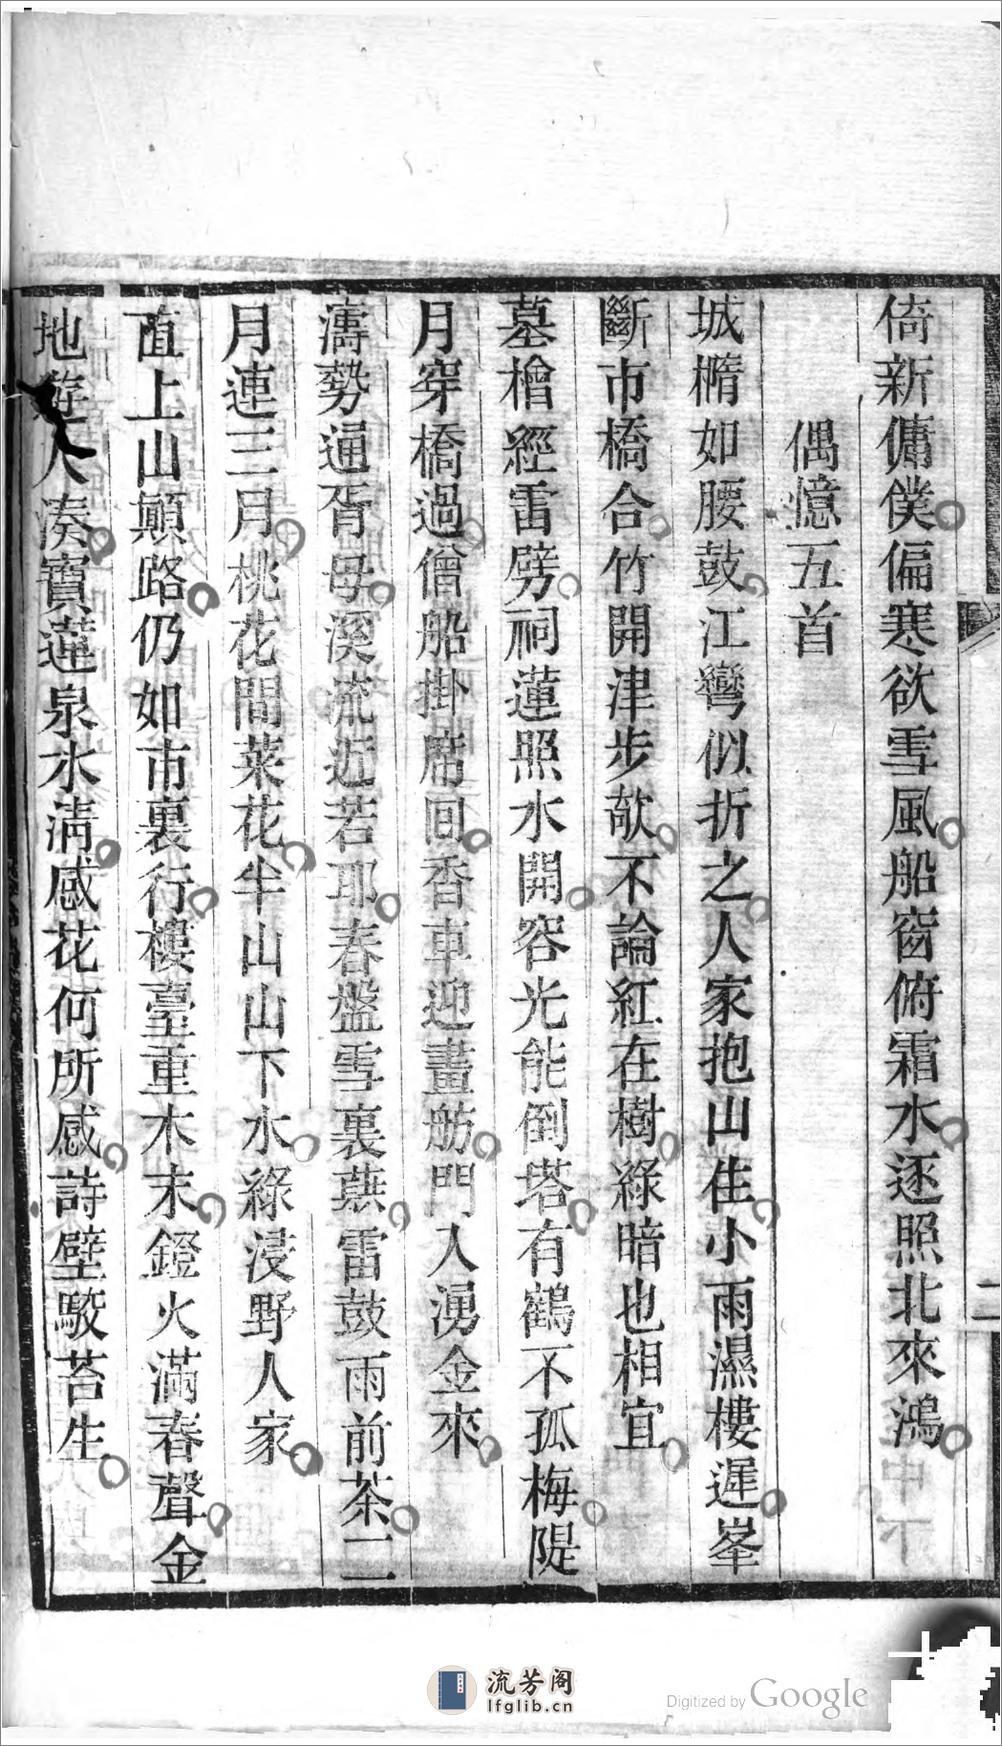 倚新傭僕偏寒欲雪風船窗俯霜水逐照北來鴻
偶憶五首
城橢如腰鼓江彎似折之人家抱山住小雨濕樓遲峯
斷市橋合竹開津步欹不論紅在樹綠暗也相宜
墓檜經雷劈祠蓮照水開容光能倒塔有鶴不孤梅隄
月穿橋過僧船掛席回香車迎畫舫門入湧金來
濤勢通胥母溪流近若耶春盤雪裏蕻雷鼓雨前茶二
月連三月桃花間菜花半山山下水綠浸野人家
直上山顛路仍如市裏行樓臺重木末鐙火滿春聲金
地遊人湊寶蓮泉水淸感花何所感詩壁駮苔生
二
流芳阁
lfglib.cn
Digitized by Google